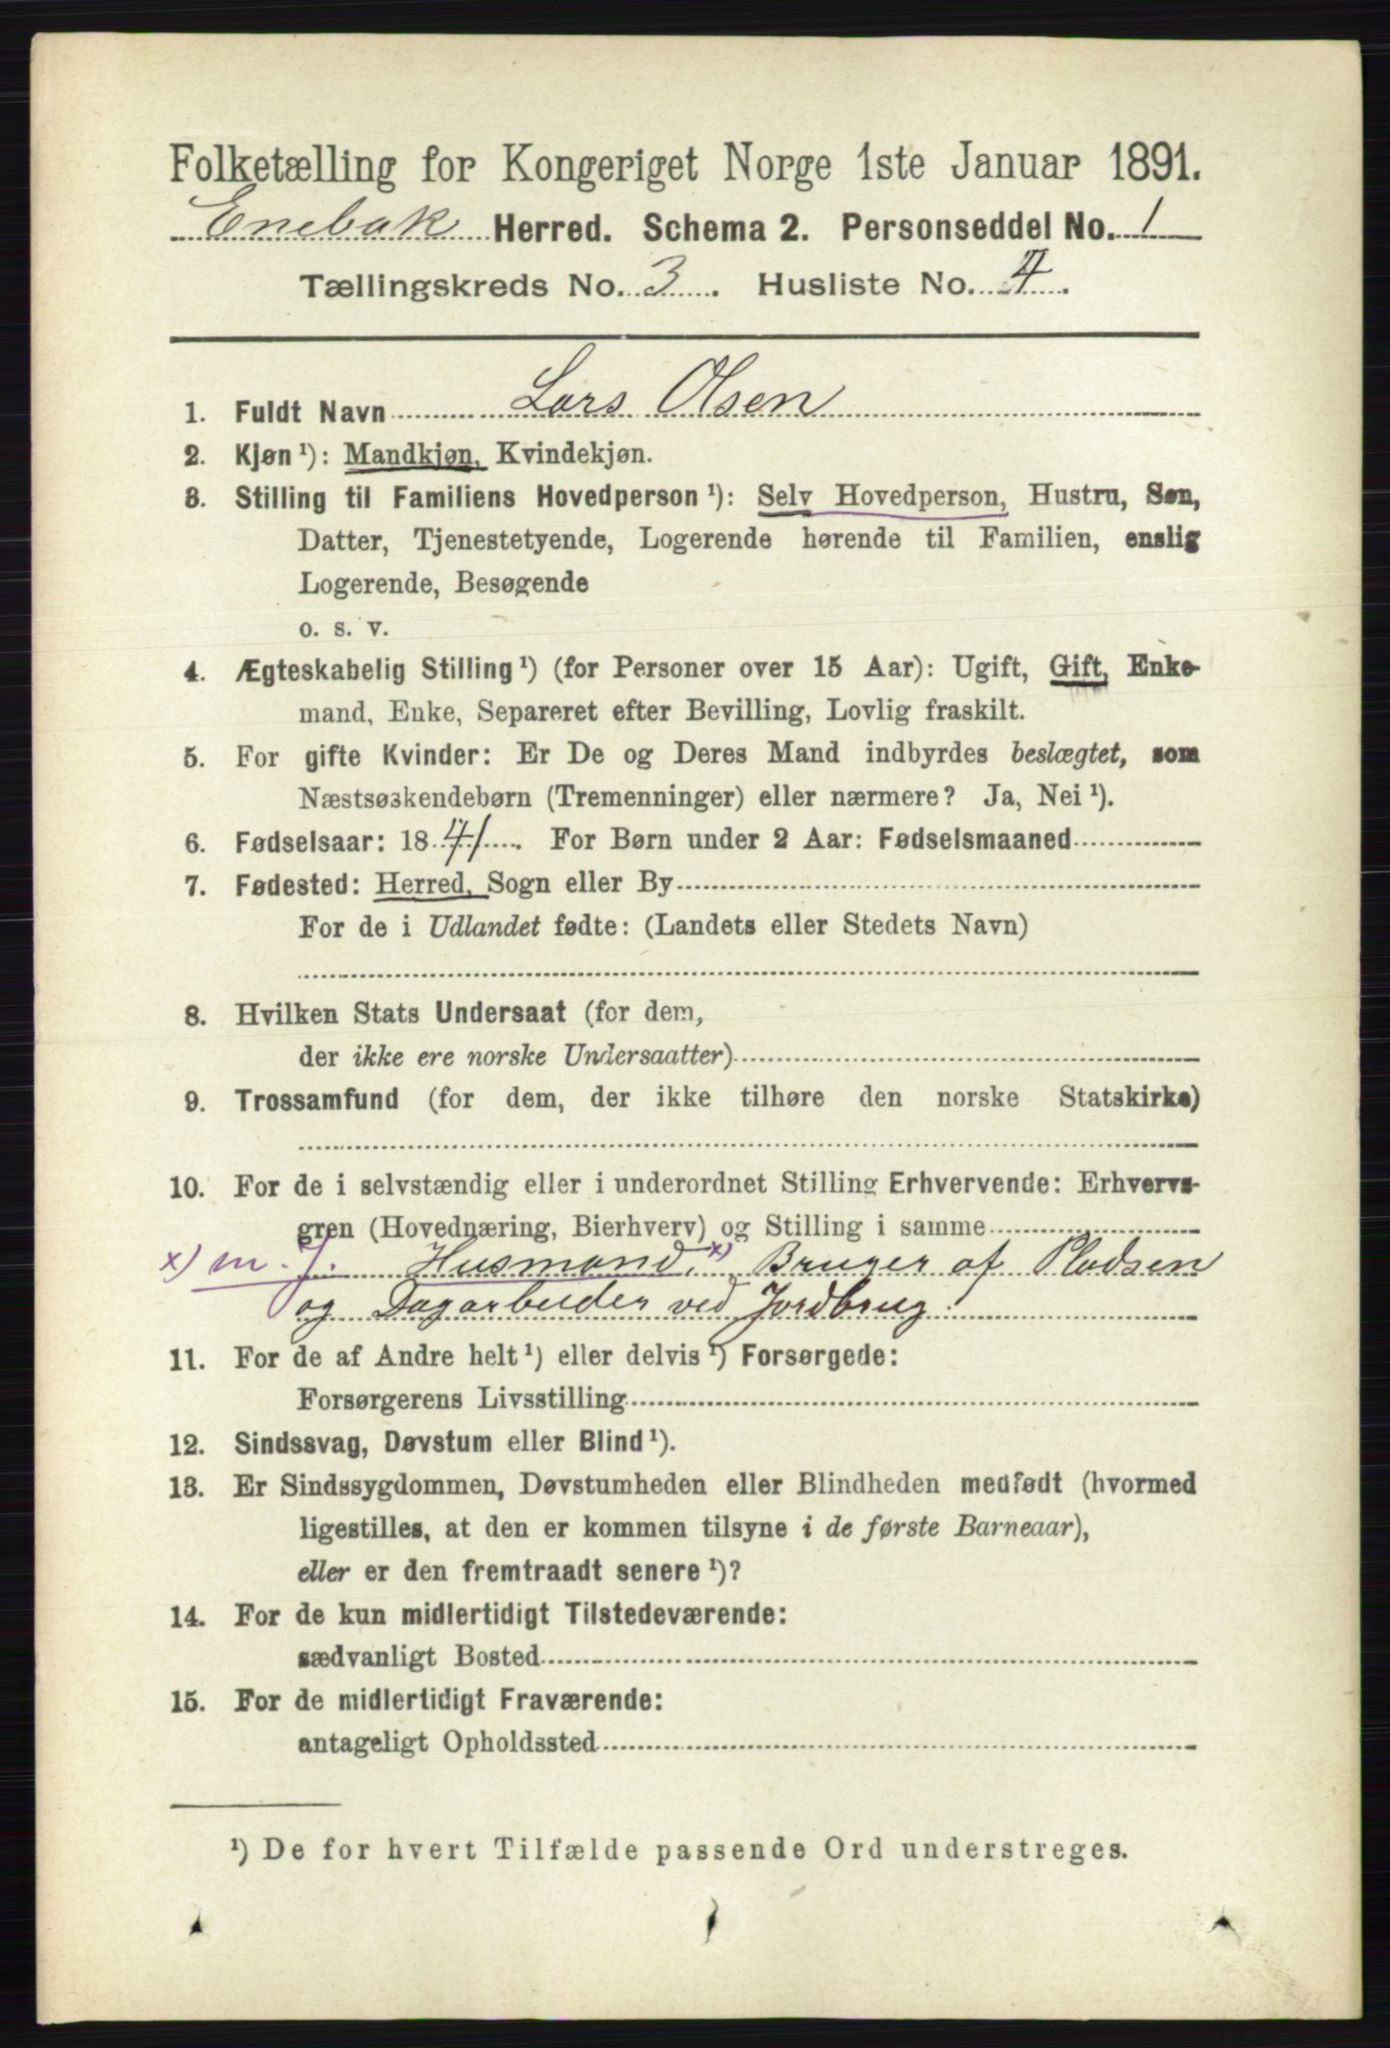 Folketælling for Kongeriget Norge 1ste Januar 1891.
Enebak Herred. Schema 2. Personseddel No. 1
Tællingskreds No. 3. Husliste No. 4.
1. Fuldt Navn Lars Olsen
2. Kjøn ¹): Mandkjøn, Kvindekjøn.
3. Stilling til Familiens Hovedperson ¹): Selv Hovedperson, Hustru, Søn,
Datter, Tjenestetyende, Logerende hørende til Familien, enslig
Logerende, Besøgende
o. s. v.
4. Ægteskabelig Stilling ¹) (for Personer over 15 Aar): Ugift, Gift, Enke-
mand, Enke, Separeret efter Bevilling, Lovlig fraskilt.
5. For gifte Kvinder: Er De og Deres Mand indbyrdes beslægtet, som
Næstsøskendebørn (Tremenninger) eller nærmere? Ja, Nei ¹).
6. Fødselsaar: 1841. For Børn under 2 Aar: Fødselsmaaned
7. Fødested: Herred, Sogn eller By
For de i Udlandet fødte: (Landets eller Stedets Navn)
8. Hvilken Stats Undersaat (for dem,
der ikke ere norske Undersaatter)
9. Trossamfund (for dem, der ikke tilhøre den norske Statskirke)
10. For de i selvstændig eller i underordnet Stilling Erhvervende: Erhvervs-
gren (Hovednæring, Bierhverv) og Stilling i samme
x) m. J. Husmand, x) Bruger af Pladsen
og Dagarbeider ved Jordbrug.
11. For de af Andre helt ¹) eller delvis ¹) Forsørgede:
Forsørgerens Livsstilling
12. Sindssvag, Døvstum eller Blind ¹).
13. Er Sindssygdommen, Døvstumheden eller Blindheden medfødt (hvormed
ligestilles, at den er kommen tilsyne i de første Barneaar),
eller er den fremtraadt senere ¹)?
14. For de kun midlertidigt Tilstedeværende:
sædvanligt Bosted
15. For de midlertidigt Fraværende:
antageligt Opholdssted
¹) De for hvert Tilfælde passende Ord understreges.